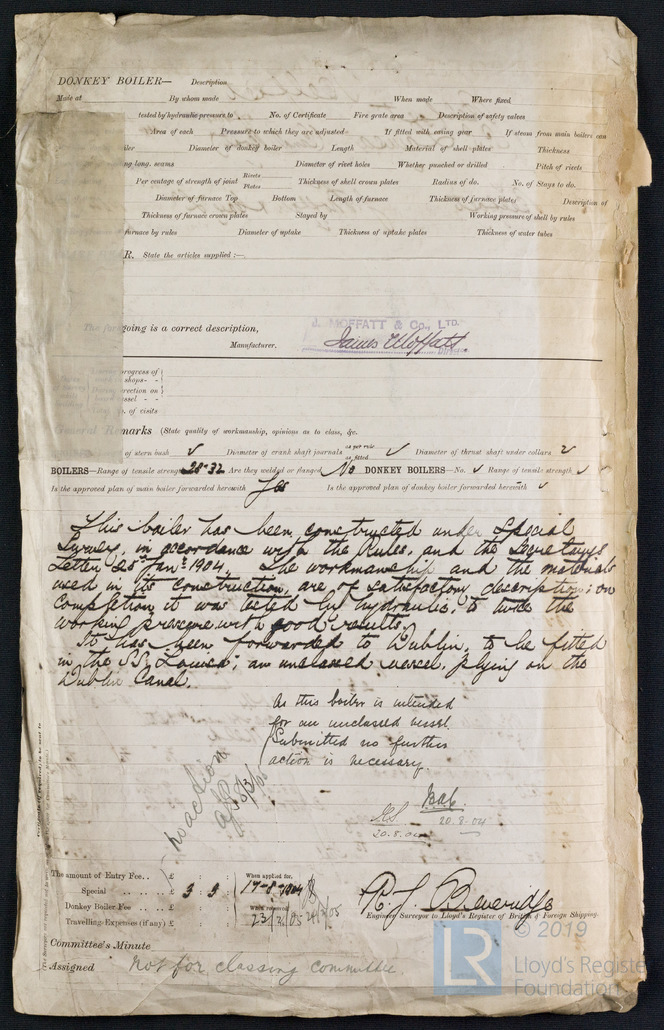 DONKEY BOILER— Description
Made at By whom made When made Where fixed
tested by hydraulic pressure to No. of Certificate Fire grate area Description of safety valves
Area of each Pressure to which they are adjusted If fitted with easing gear If steam from main boilers can
Diameter of donkey boiler Length Material of shell plates Thickness
long. seams Diameter of rivet holes Whether punched or drilled Pitch of rivets
Per centage of strength of joint Rivets Plates Thickness of shell crown plates Radius of do. No. of Stays to do.
Diameter of furnace Top Bottom Length of furnace Thickness of furnace plates Description of
Thickness of furnace crown plates Stayed by Working pressure of shell by rules
furnace by rules Diameter of uptake Thickness of uptake plates Thickness of water tubes
R. State the articles supplied :—
The foregoing is a correct description,
J. MOFFATT & Co., LTD.
Manufacturer. James Moffatt
Director
progress of
shops - -
erection on
vessel - -
of visits
General Remarks (State quality of workmanship, opinions as to class, &c.
of stern bush ✓ Diameter of crank shaft journals as per rule as fitted ✓ Diameter of thrust shaft under collars ✓
BOILERS—Range of tensile strength 28-32 Are they welded or flanged No DONKEY BOILERS—No. ✓ Range of tensile strength ✓
Is the approved plan of main boiler forwarded herewith Yes Is the approved plan of donkey boiler forwarded herewith ✓
This boiler has been constructed under Special
Survey, in accordance with the Rules, and the Secretary's
Letter 25th Jany 1904. The workmanship and the materials
used in its construction, are of satisfactory description; on
completion it was tested by hydraulic, to twice the
working pressure, with good results.
It has been forwarded to Dublin, to be fitted
in the S.S. Louisa; an unclassed vessel, plying on the
Dublin Canal.
As this boiler is intended
for an unclassed vessel.
Submitted no further
action is necessary.
no action
20.8.04
20.8.04
The amount of Entry Fee . . £ : : When applied for,
Special . . . . . £ 3 : 3 : 17-8-1904
Donkey Boiler Fee . . . . £ : : When received,
Travelling Expenses (if any) £ : : 23/2/05
R. J. Beveridge
Engineer Surveyor to Lloyd's Register of British & Foreign Shipping.
Committee's Minute
Assigned Not for classing committee
LR © 2019
Lloyd's Registe
Foundation